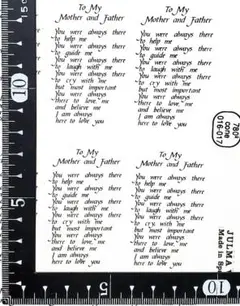 To My
Mother and Father
You were always there
to help me
You were always there
to guide me
You were always there
to laugh with me
You were always there
to cry with me
but most important
You were always
there to love me
and believe me
I am always
here to love you
To My
Mother and Father
You were always there
to help me
You were always there
to guide me
You were always there
to laugh with me
You were always there
to cry with me
but most important
You were always
there to love me
and believe me
I am always
here to love you
To My
Mother and Father
You were always there
to help me
You were always there
to guide me
You were always there
to laugh with me
You were always there
to cry with me
but most important
You were always
there to love me
and believe me
I am always
here to love you
To My
Mother and Father
You were always there
to help me
You were always there
to guide me
You were always there
to laugh with me
You were always there
to cry with me
but most important
You were always
there to love me
and believe me
I am always
here to love you
10
5
5
10
016-017
JULMA
Made in Sp